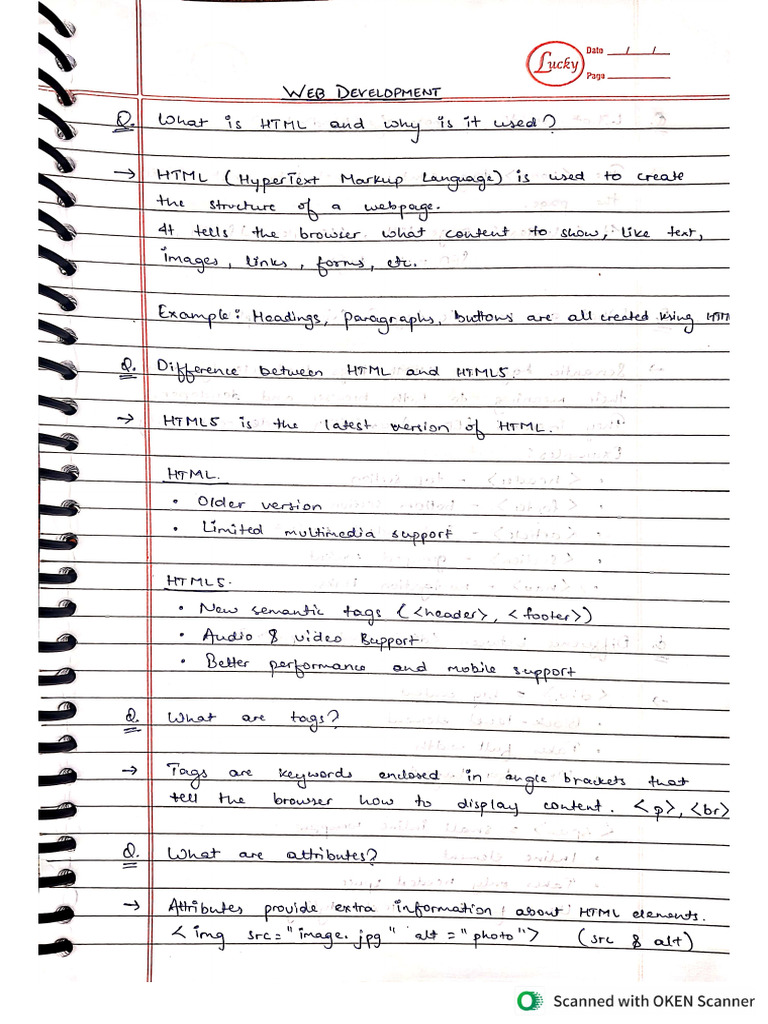 Lucky
Date / /
Page
WEB DEVELOPMENT
Q. What is HTML and why is it used?
→ HTML (HyperText Markup Language) is used to create
the structure of a webpage.
It tells the browser what content to show, like text,
images, links, forms, etc.
Example: Headings, paragraphs, buttons are all created using HTM
Q. Difference between HTML and HTML5.
→ HTML5 is the latest version of HTML.
HTML.
• Older version
• Limited multimedia support
HTML5.
• New semantic tags (<header>, <footer>)
• Audio & video Bupport
• Better performance and mobile support
Q. What are tags?
→ Tags are keywords enclosed in angle brackets that
tell the browser how to display content. <p>, <br>
Q. What are attributes?
→ Attributes provide extra information about HTML elements.
<img src="image.jpg" alt="photo"> (src & alt)
Scanned with OKEN Scanner